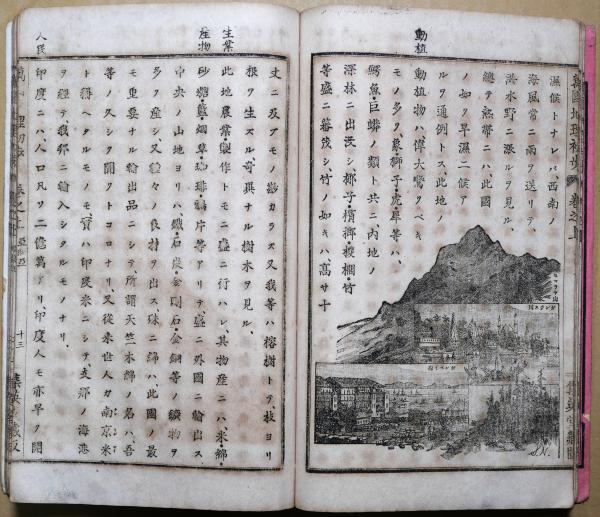 萬國地理初歩 卷之上
濕候トナレバ、西南ノ
海風常ニ雨ヲ送リテ、
洪水野ニ漲ルヲ見ル、
總テ熱帶ニハ、此國
ノ如ク旱濕二候アル
ヲ通例トス、此地ノ
動植
動植物ハ偉大驚クベキ
モノ多ク、象獅子・虎犀等ハ、
鰐魚・巨蟒ノ類ト共ニ、内地ノ
深林ニ出没シ、椰子・檳榔・椶櫚・竹
等盛ニ蕃茂シ、竹ノ如キハ、高サ十
S.N.
丈ニ及フモノ尠カラス、又我等ハ榕樹トテ枝ヨリ
根ヲ生スル、奇異ナル樹木ヲ見ル、
生業
産物
此地農業製作トモニ盛ニ行ハレ、其物産ニハ、米・綿・
砂糖・藍・烟草・珈琲・鴉片等アリテ、盛ニ外國ニ輸出ス、
中央ノ山地ヨリハ、鐵・石炭・金剛石・金銅等ノ鑛物ヲ
多ク産シ、又種々ノ良材ヲ出ス、殊ニ綿ハ、此國ノ最
モ重要ナル輸出品ニシテ、所謂天竺木綿ノ名ハ、吾
等ノ久シク聞クトコロナリ、又從來世人カ南京米
ト稱ヘタルモノモ、實ハ印度米ニシテ、支那ノ海港
ヲ經テ、我邦ニ輸入シタルモノナリ、
人民
印度ニハ、人口凡ソ二億萬アリ、印度人モ亦早ク開
十三